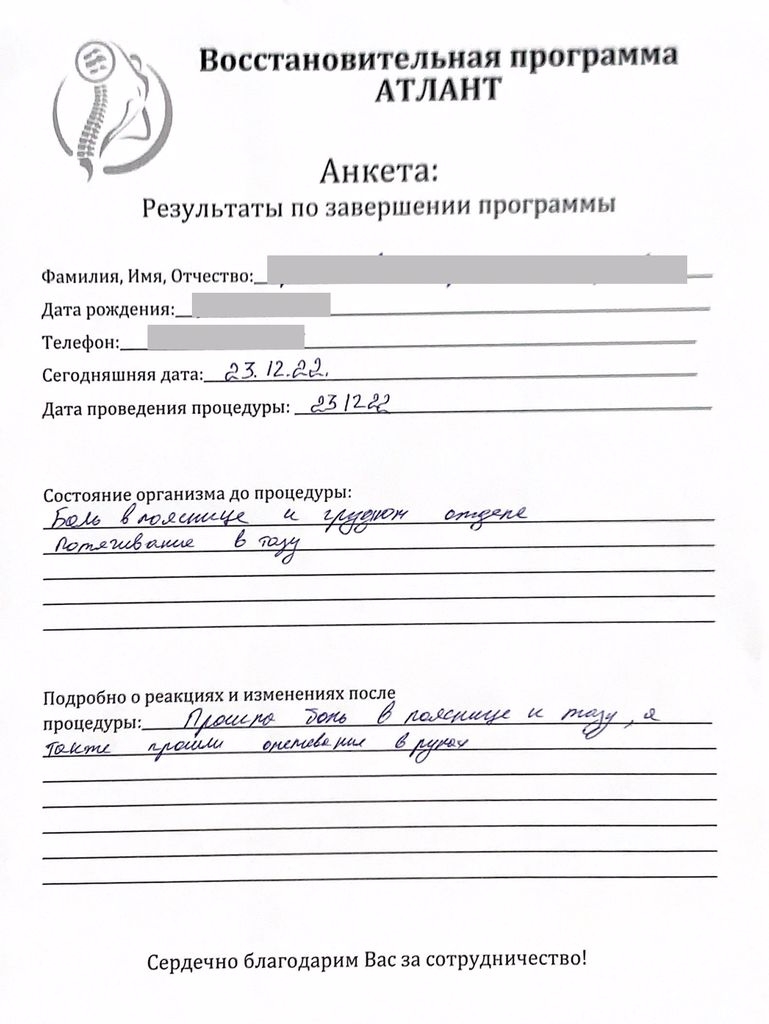 Восстановительная программа
АТЛАНТ
Анкета:
Результаты по завершении программы
Фамилия, Имя, Отчество:
Дата рождения:
Телефон:
Сегодняшняя дата: 23.12.22.
Дата проведения процедуры: 23 12 22
Состояние организма до процедуры:
Боль в пояснице и грудном отделе
Потягивание в тазу
Подробно о реакциях и изменениях после
процедуры: Прошла боль в пояснице и тазу, а
также прошли онемевание в руках
Сердечно благодарим Вас за сотрудничество!